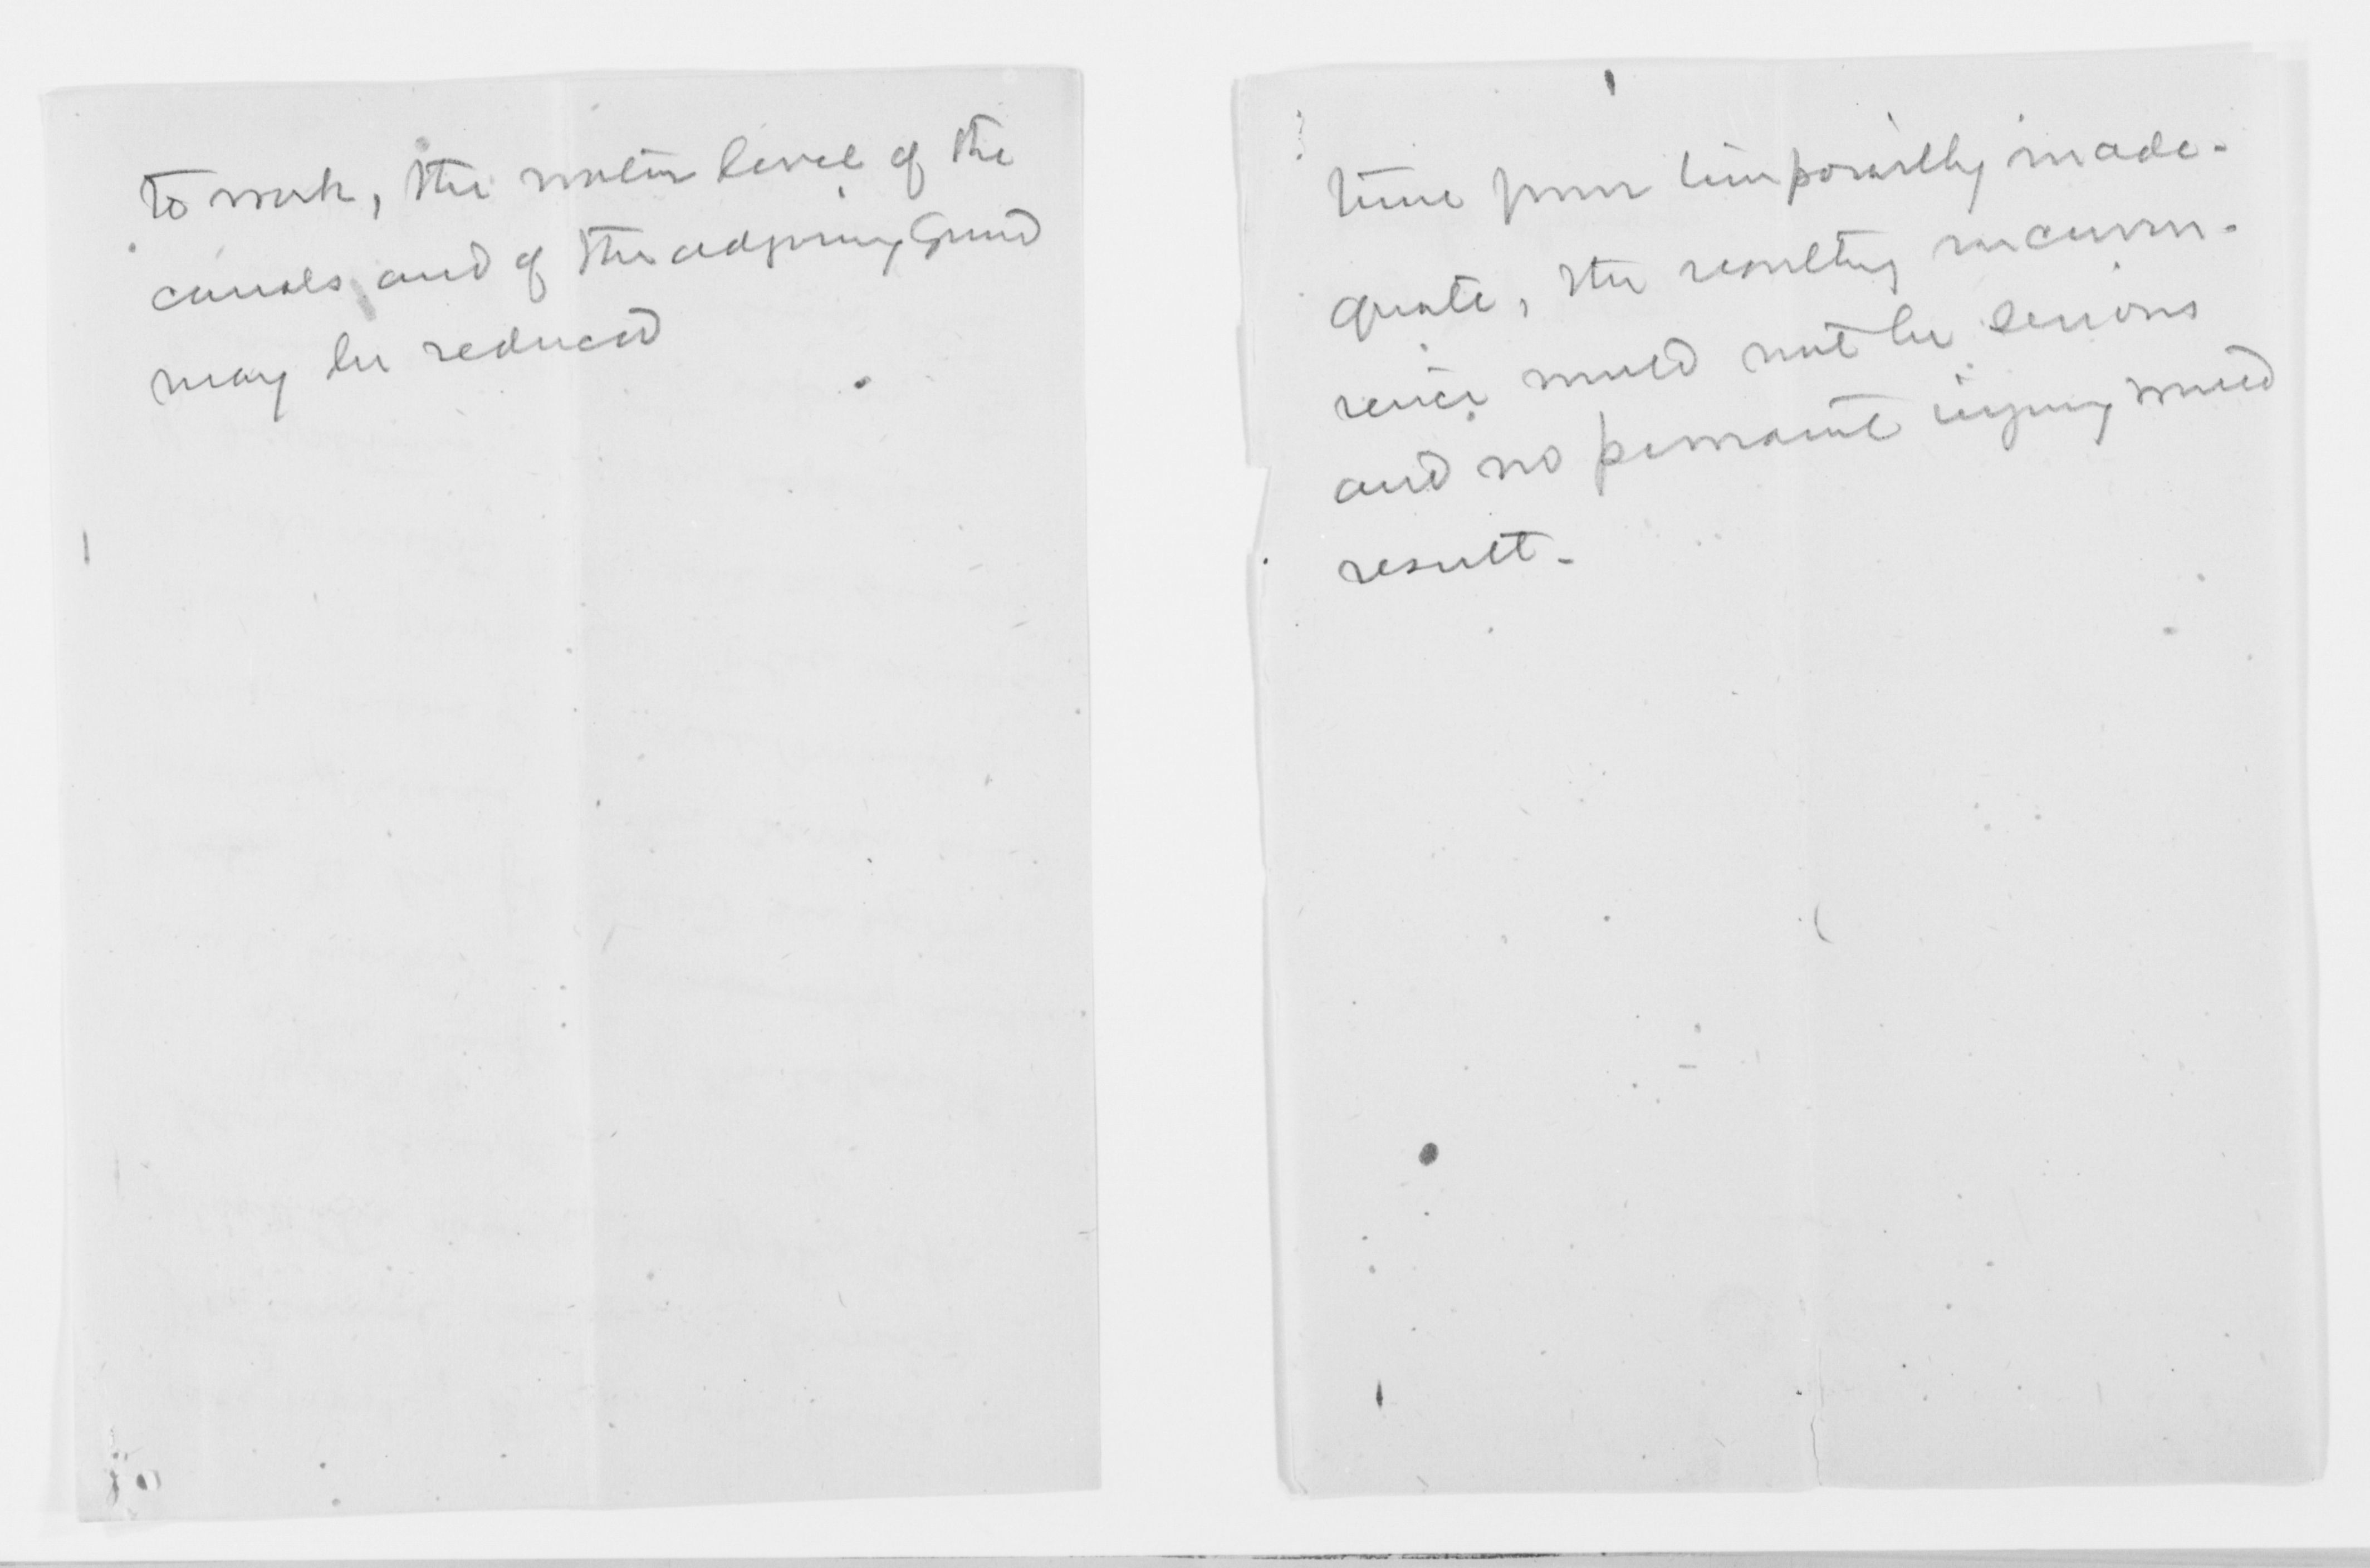 to work, the water level of the
canals and of the adjoining Ground
may be reduced
time prove temporarily inade-
quate, the resulting inconven-
ience would not be serious
and no permanent injury would
result.